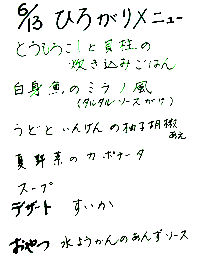 6/13 ひろがりメニュー
とうもろこしと貝柱の
炊き込みごはん
白身魚のミラノ風
(タルタルソースがけ)
うどといんげんの柚子胡椒
あえ
夏野菜のカポナータ
スープ
デザート すいか
おやつ 水ようかんのあんずソース